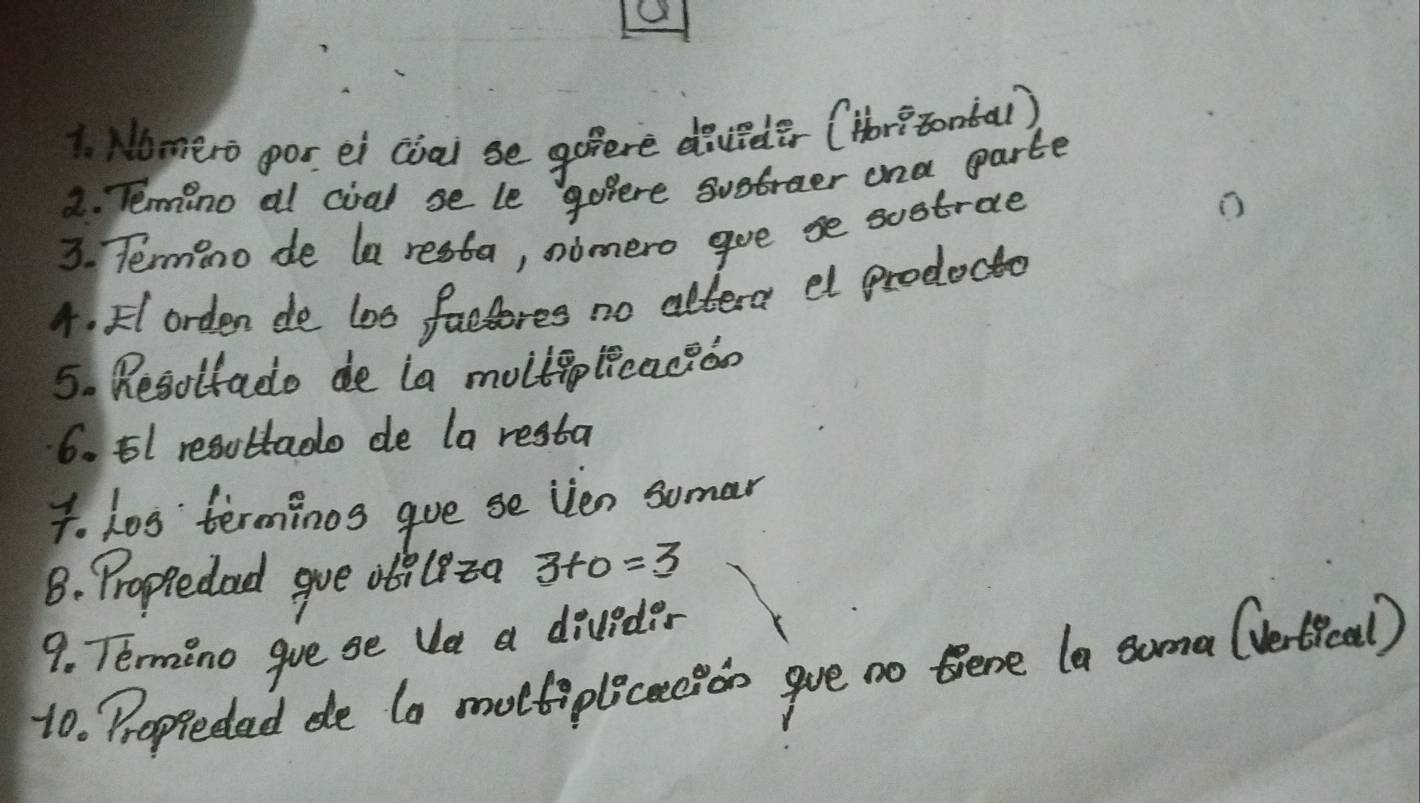 1. Número por el cúal se quiere dividir (Horizontal)
2. Termino al cúal se le quiere sustraer una parte
3. Termino de la resta, número que se sustrae
4. El orden de los factores no altera el producto
5. Resultado de la multiplicación
6. El resultado de la resta
7. Los términos que se ven sumar
8. Propiedad que utiliza 3+0=3
9. Término que se va a dividir
10. Propiedad de la multiplicación que no tiene la suma (Vertical)